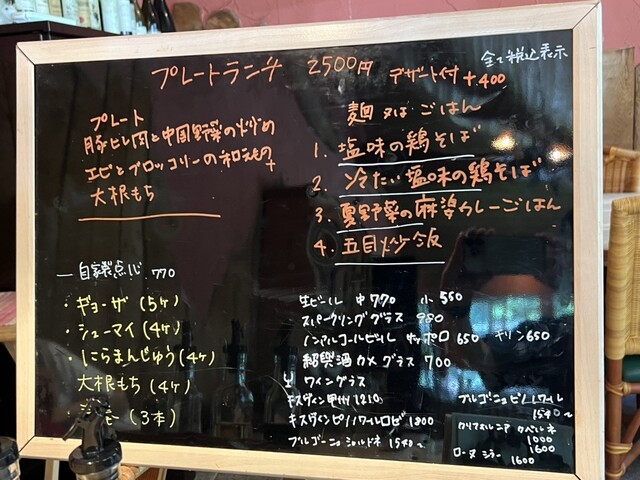 全て税込表示
プレートランチ 2500円 デザート付 +400
プレート
豚ヒレ肉と中国野菜の炒め
エビとブロッコリーの和えもの
+
大根もち
麺 又は ごはん
1. 塩味の鶏そば
2. 冷たい塩味の鶏そば
3. 夏野菜の麻婆カレーごはん
4. 五目炒飯
自家製点心 770
・ギョーザ (5ヶ)
・シューマイ (4ヶ)
・にらまんじゅう (4ヶ)
大根もち (4ヶ)
(3本)
生ビール 中 770 小 550
スパークリンググラス 980
ノンアルコールビール サッポロ 650 キリン 650
紹興酒 カメ グラス 700
ワイングラス
キスヴィン甲州 1210
キスヴィンピノノワールロゼ 1800
ブルゴーニュ シャルドネ 1540〜
ブルゴーニュ ピノノワール
1540〜
カリフォルニア カベルネ
1000
1600
ローヌ シラー 1600